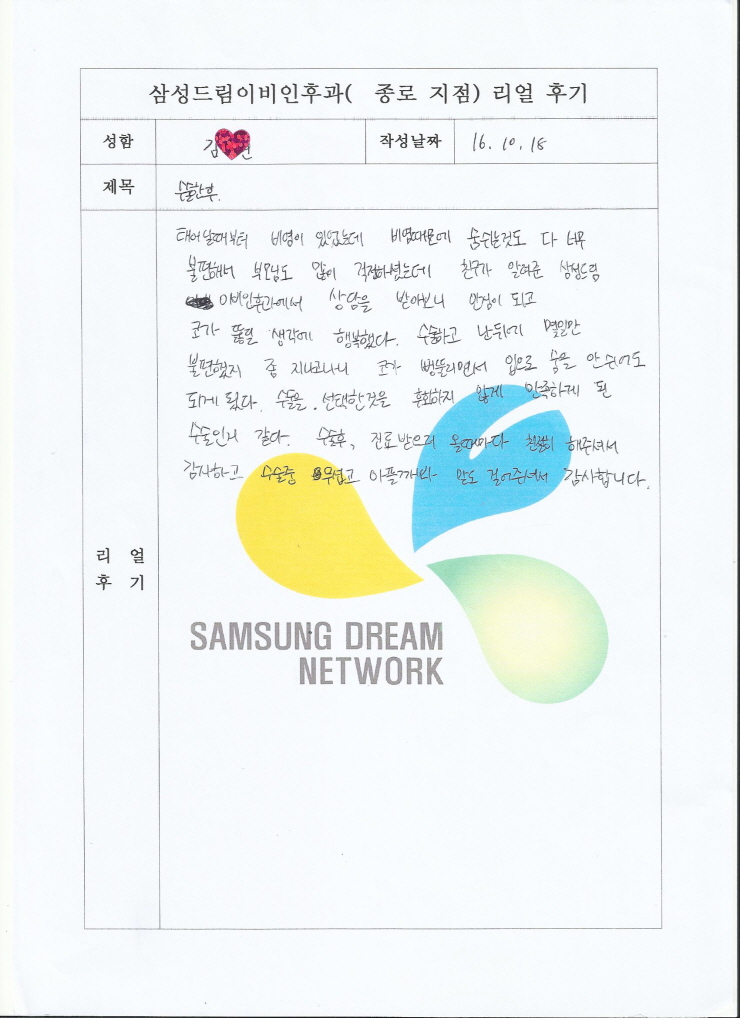 삼성드림이비인후과( 종로 지점) 리얼 후기
성함 김 작성날짜 16. 10. 18
제목 수술한후.
태어날때부터 비염이 있었는데 비염때문에 숨쉬는것도 다 너무
불편해서 부모님도 많이 걱정하셨는데 친구가 알려준 삼성드림
이비인후과에서 상담을 받아보니 안심이 되고
코가 뚫릴 생각에 행복했다. 수술하고 난뒤에 몇일만
불편했지 좀 지나고나니 코가 뻥뚫리면서 입으로 숨을 안쉬어도
되게 됬다. 수술을 선택한것을 후회하지 않게 만족하게 된
수술인거 같다. 수술후, 진료받으러 올때마다 친절히 해주셔서
감사하고 수술중 무섭고 아플까봐 말도 걸어주셔서 감사합니다.
리 얼
후 기
SAMSUNG DREAM
NETWORK